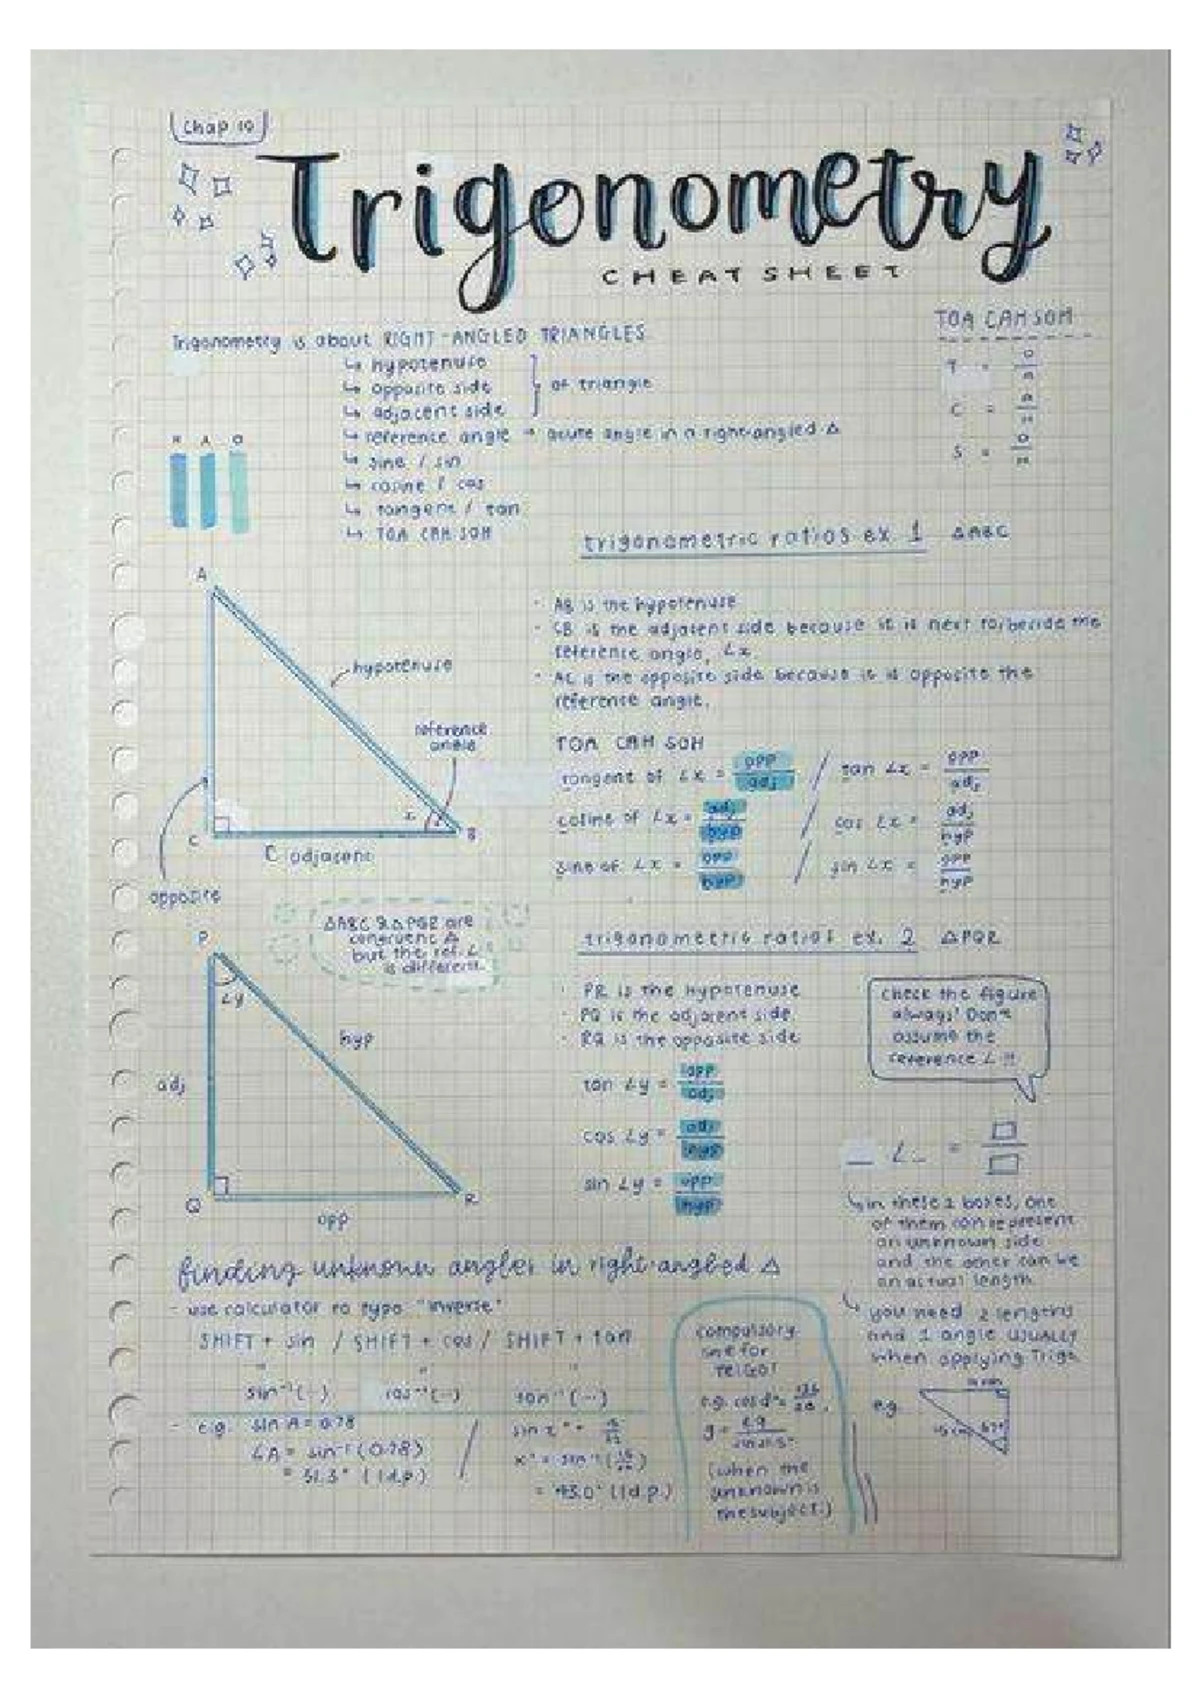 Chap 10
Trigonometry
CHEAT SHEET
TOA CAH SOH
T = O/A
C = A/H
S = O/H
Trigonometry is about RIGHT-ANGLED TRIANGLES
↳ hypotenuse
↳ opposite side } of triangle
↳ adjacent side
↳ reference angle → acute angle in a right-angled Δ
↳ sine / sin
↳ cosine / cos
↳ tangent / tan
↳ TOA CAH SOH
H A O
trigonometric ratios ex 1 ΔABC
A
hypotenuse
reference
angle
x
C
B
C adjacent
opposite
· AB is the hypotenuse
· CB is the adjacent side because it is next to/beside the
reference angle, ∠x
· AC is the opposite side because it is opposite the
reference angle.
TOA CAH SOH
tangent of ∠x = opp/adj / tan ∠x = opp/adj
cosine of ∠x = adj/hyp / cos ∠x = adj/hyp
sine of ∠x = opp/hyp / sin ∠x = opp/hyp
ΔABC & ΔPQR are
congruent Δ
but the ref. ∠
is different.
P
∠y
hyp
adj
Q
R
opp
trigonometric ratios ex. 2 ΔPQR
· PR is the hypotenuse
· PQ is the adjacent side
· RQ is the opposite side
tan ∠y = opp/adj
cos ∠y = adj/hyp
sin ∠y = opp/hyp
Check the figure
always! Don't
assume the
reference ∠ !!
_ ∠_ = □/□
↳ in these 2 boxes, one
of them can represent
an unknown side
and the other can be
an actual length
↳ you need 2 lengths
and 1 angle USUALLY
when applying Trigo
e.g.
finding unknown angles in right-angled Δ
- use calculator to type "inverse"
SHIFT + sin / SHIFT + cos / SHIFT + tan
" " "
sin⁻¹(...) cos⁻¹(...) tan⁻¹(...)
- e.g. sin A = 0.78
∠A = sin⁻¹(0.78)
= 51.3° (1 d.p.)
/
sin x° =
x° = sin⁻¹
= 43.0° (1 d.p.)
compulsory
line for
TRIGO!
e.g. cos d° =
g =
(when the
unknown is
the subject.)